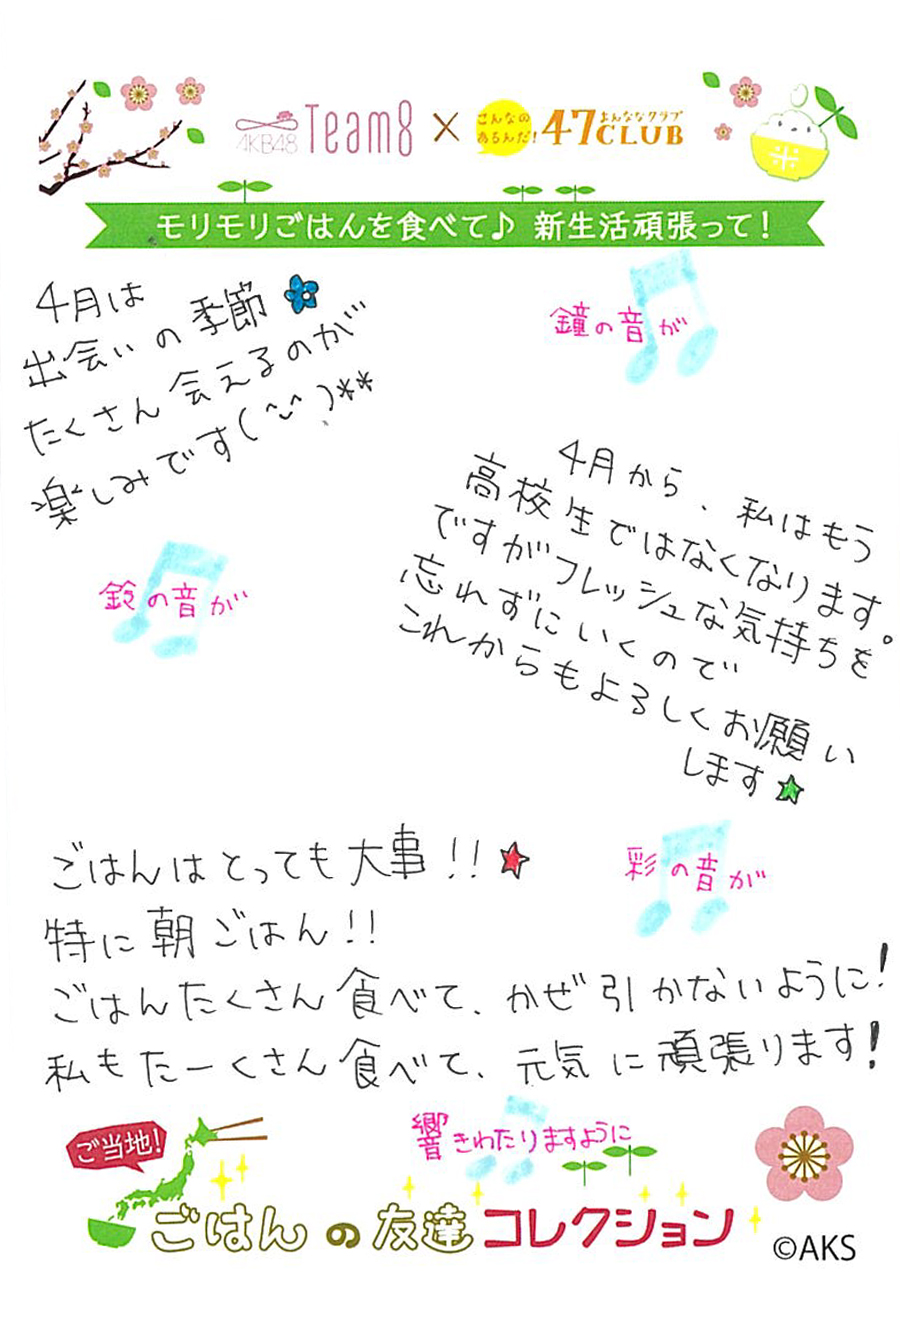 AKB48 Team8 × こんなの あるんだ! 47CLUB よんななクラブ
モリモリごはんを食べて♪ 新生活頑張って!
4月は
出会いの季節
たくさん会えるのが
楽しみです(^‿^)**
鐘の音が
4月から、私はもう
高校生ではなくなります。
ですがフレッシュな気持ちを
忘れずにいくので
これからもよろしくお願い
します★
鈴の音が
ごはんはとっても大事!!★
特に朝ごはん!!
彩の音が
ごはんたくさん食べて、かぜ引かないように!
私もたーくさん食べて、元気に頑張ります!
響きわたりますように
ご当地!
ごはんの友達コレクション
©AKS
米